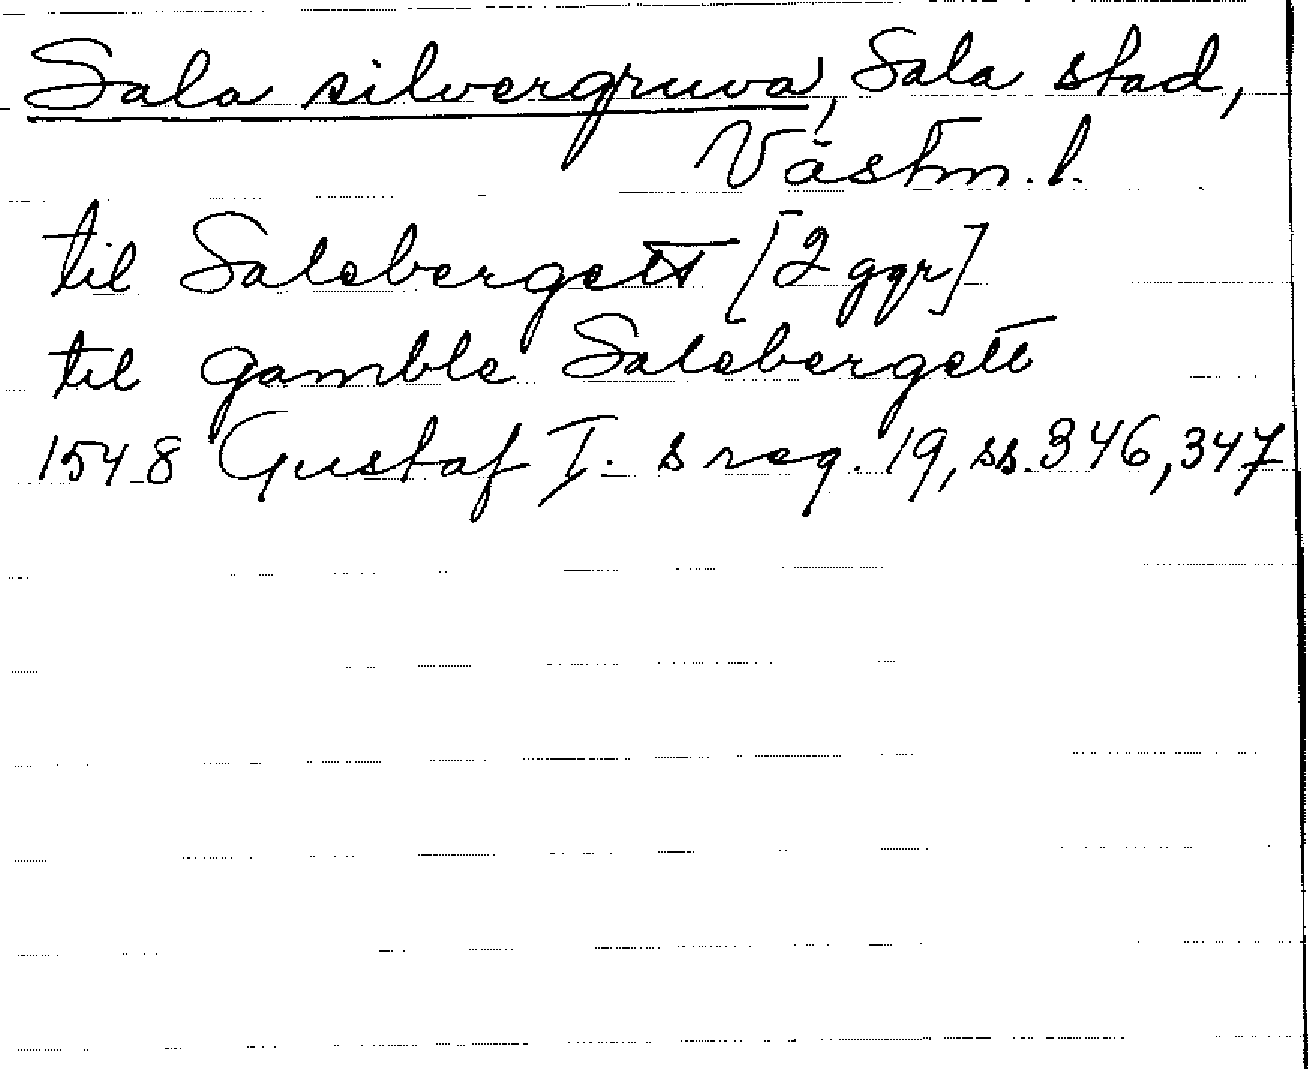 Sala silvergruva, Sala stad,
Västm. l.
til Salebergett [2 ggr]
til gamble Salebergett
1548 Gustaf I. s reg. 19, ss. 346, 347